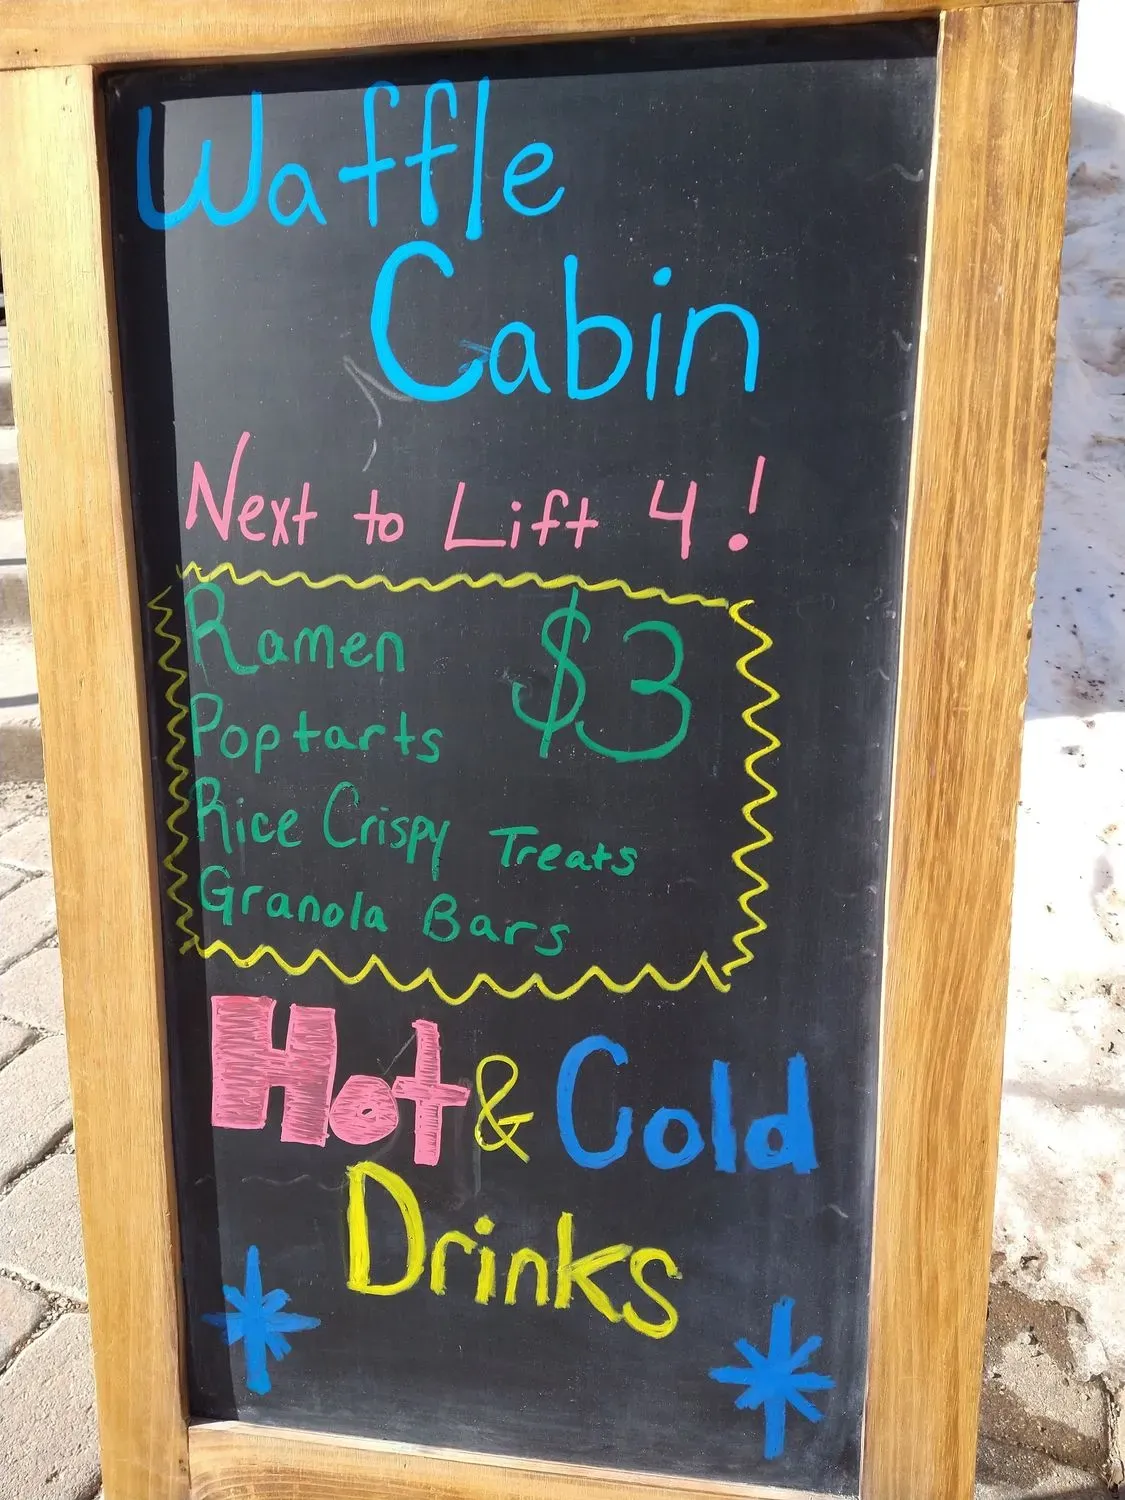 Waffle
Cabin
Next to Lift 4!
Ramen $3
Poptarts
Rice Crispy Treats
Granola Bars
Hot & Cold
Drinks